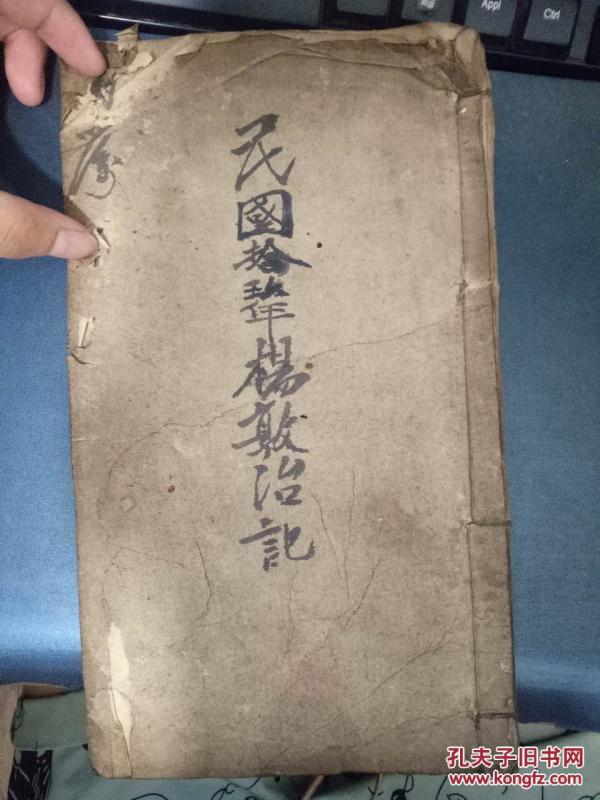 民國拾玖年楊敦治記
Appl
Ctrl
孔夫子旧书网
www.kongfz.com